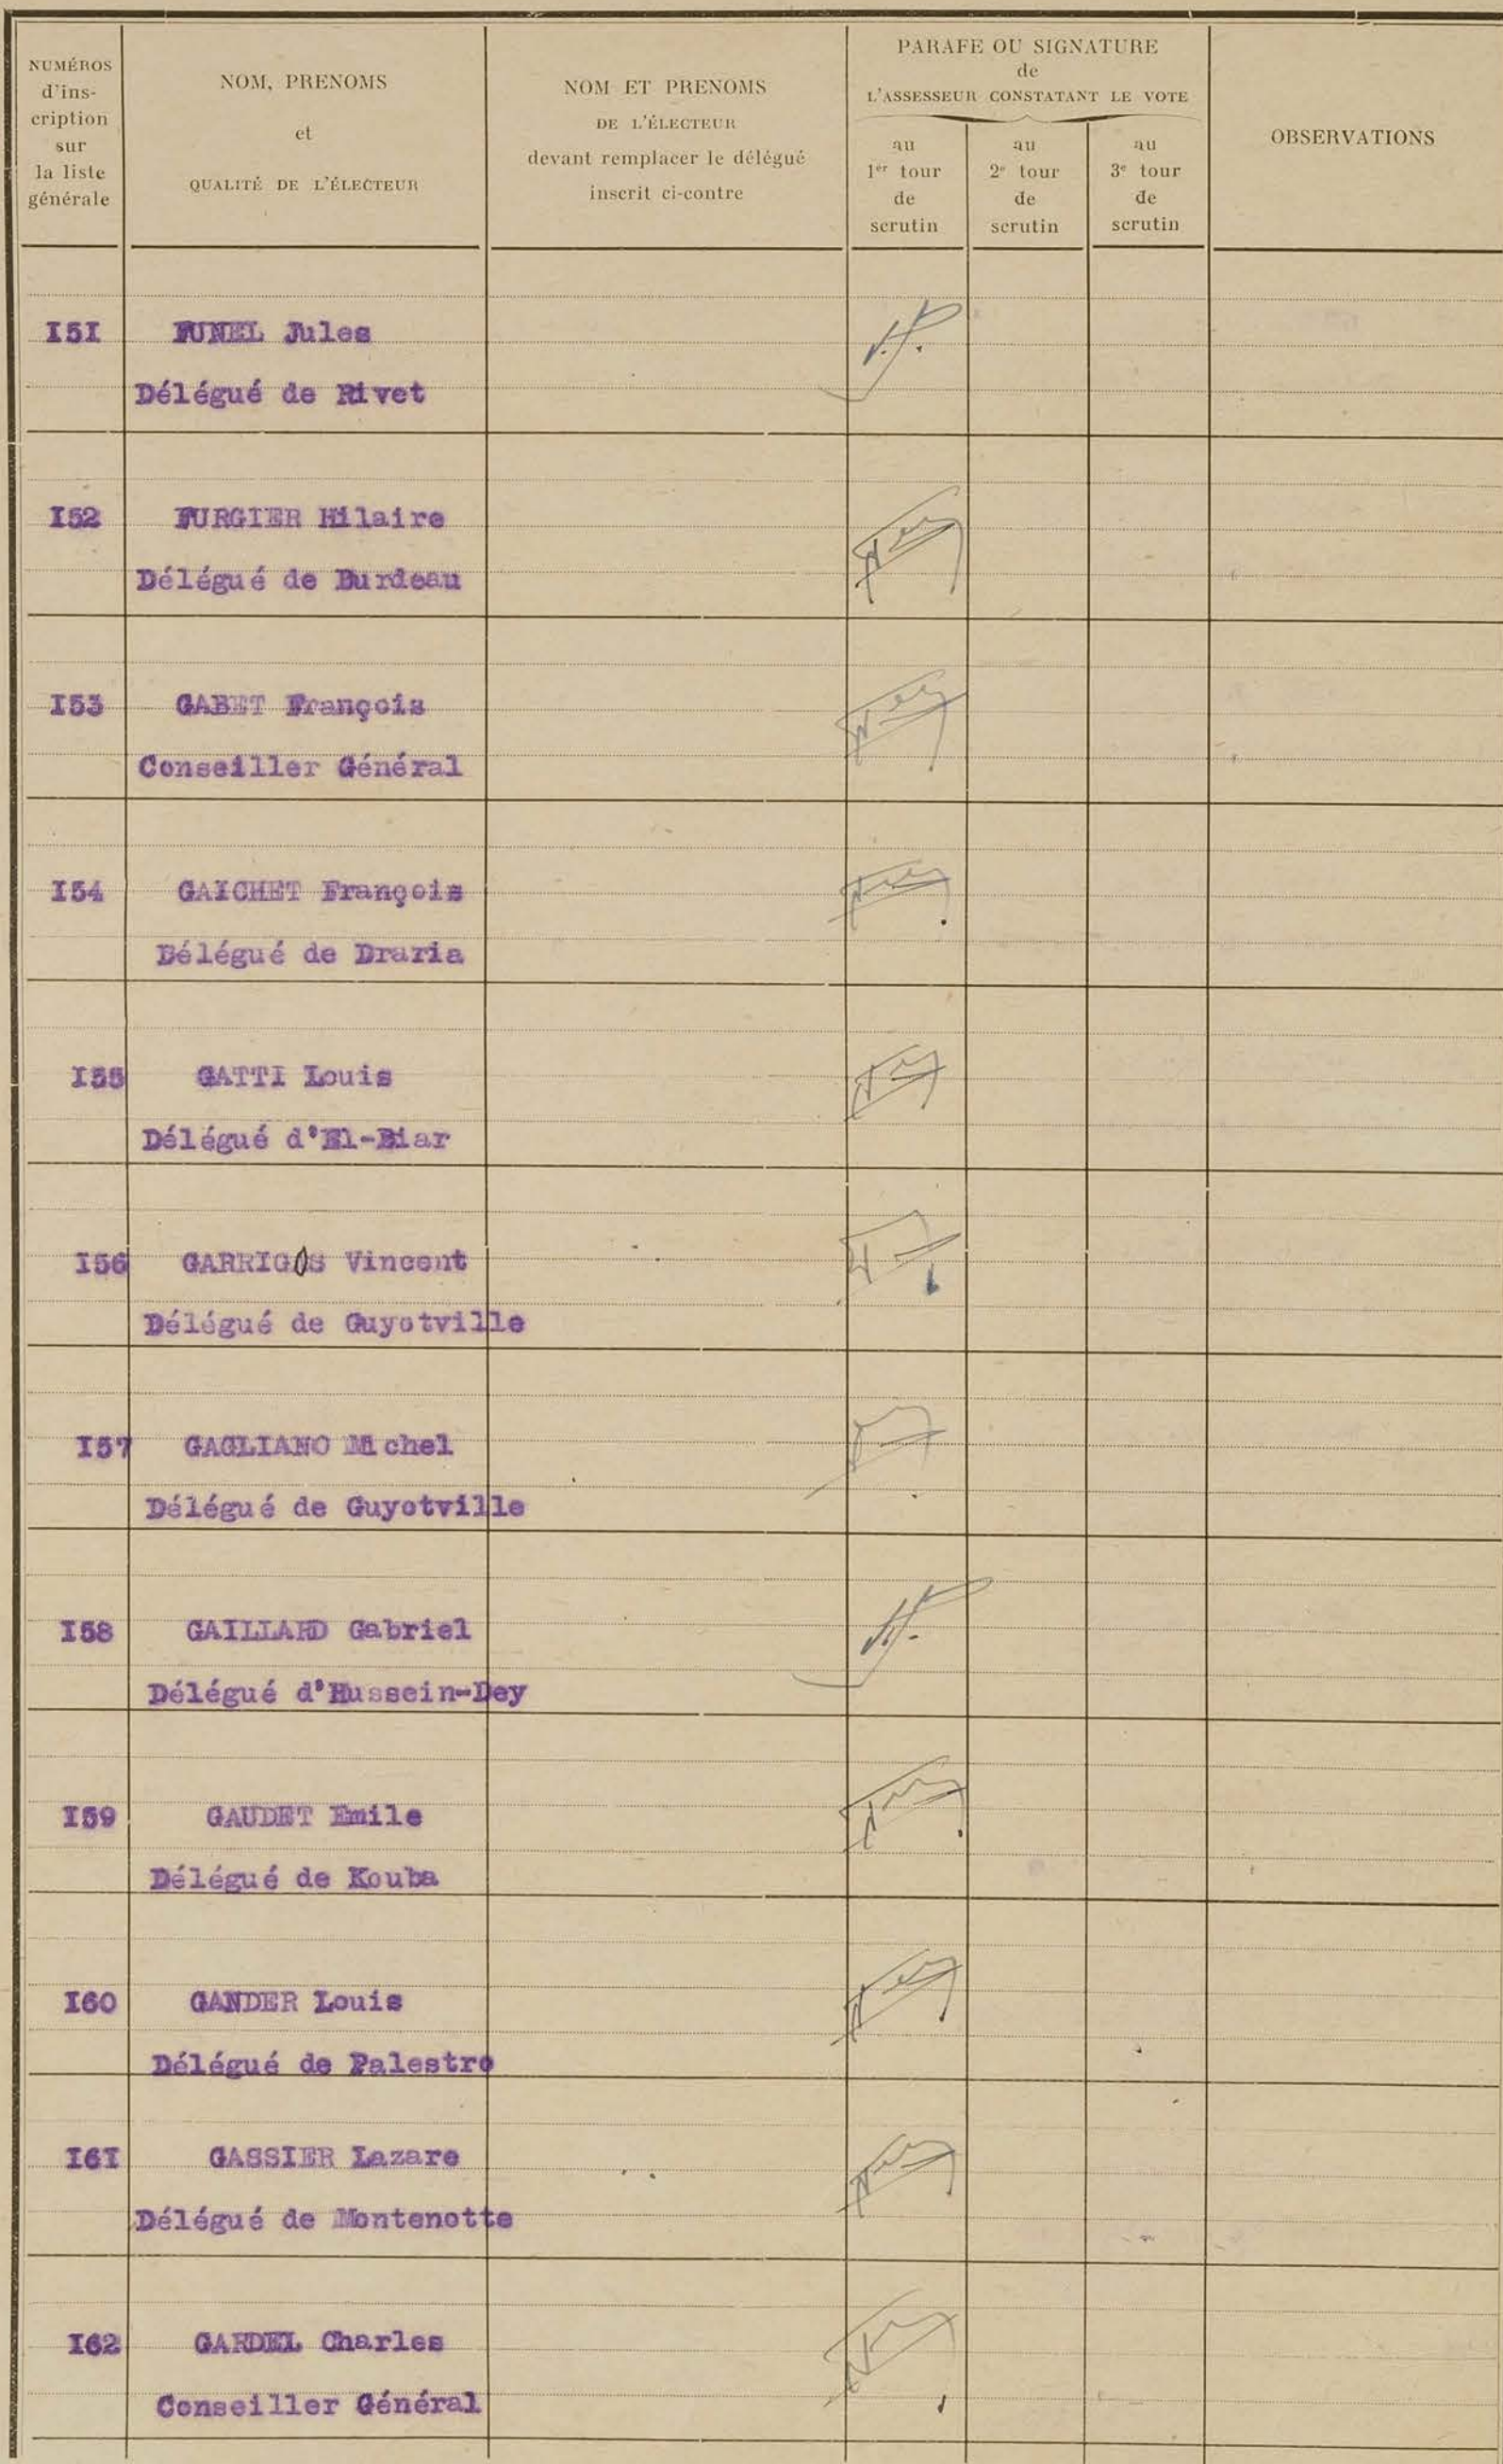 NUMÉROS
d'ins-
cription
sur
la liste
générale
NOM, PRENOMS
et
QUALITÉ DE L'ÉLECTEUR
NOM ET PRENOMS
DE L'ÉLECTEUR
devant remplacer le délégué
inscrit ci-contre
PARAFE OU SIGNATURE
de
L'ASSESSEUR CONSTATANT LE VOTE
au
1er tour
de
scrutin
au
2e tour
de
scrutin
au
3e tour
de
scrutin
OBSERVATIONS
I5I FUNEL Jules
Délégué de Rivet
I52 FURGIER Hilaire
Délégué de Burdeau
I53 GABET François
Conseiller Général
I54 GAICHET François
Délégué de Draria
I55 GATTI Louis
Délégué d'El-Biar
I56 GARRIGOS Vincent
Délégué de Guyotville
I57 GAGLIANO Michel
Délégué de Guyotville
I58 GAILLARD Gabriel
Délégué d'Hussein-Dey
I59 GAUDET Emile
Délégué de Kouba
I60 GANDER Louis
Délégué de Palestro
I6I GASSIER Lazare
Délégué de Montenotte
I62 GARDEL Charles
Conseiller Général